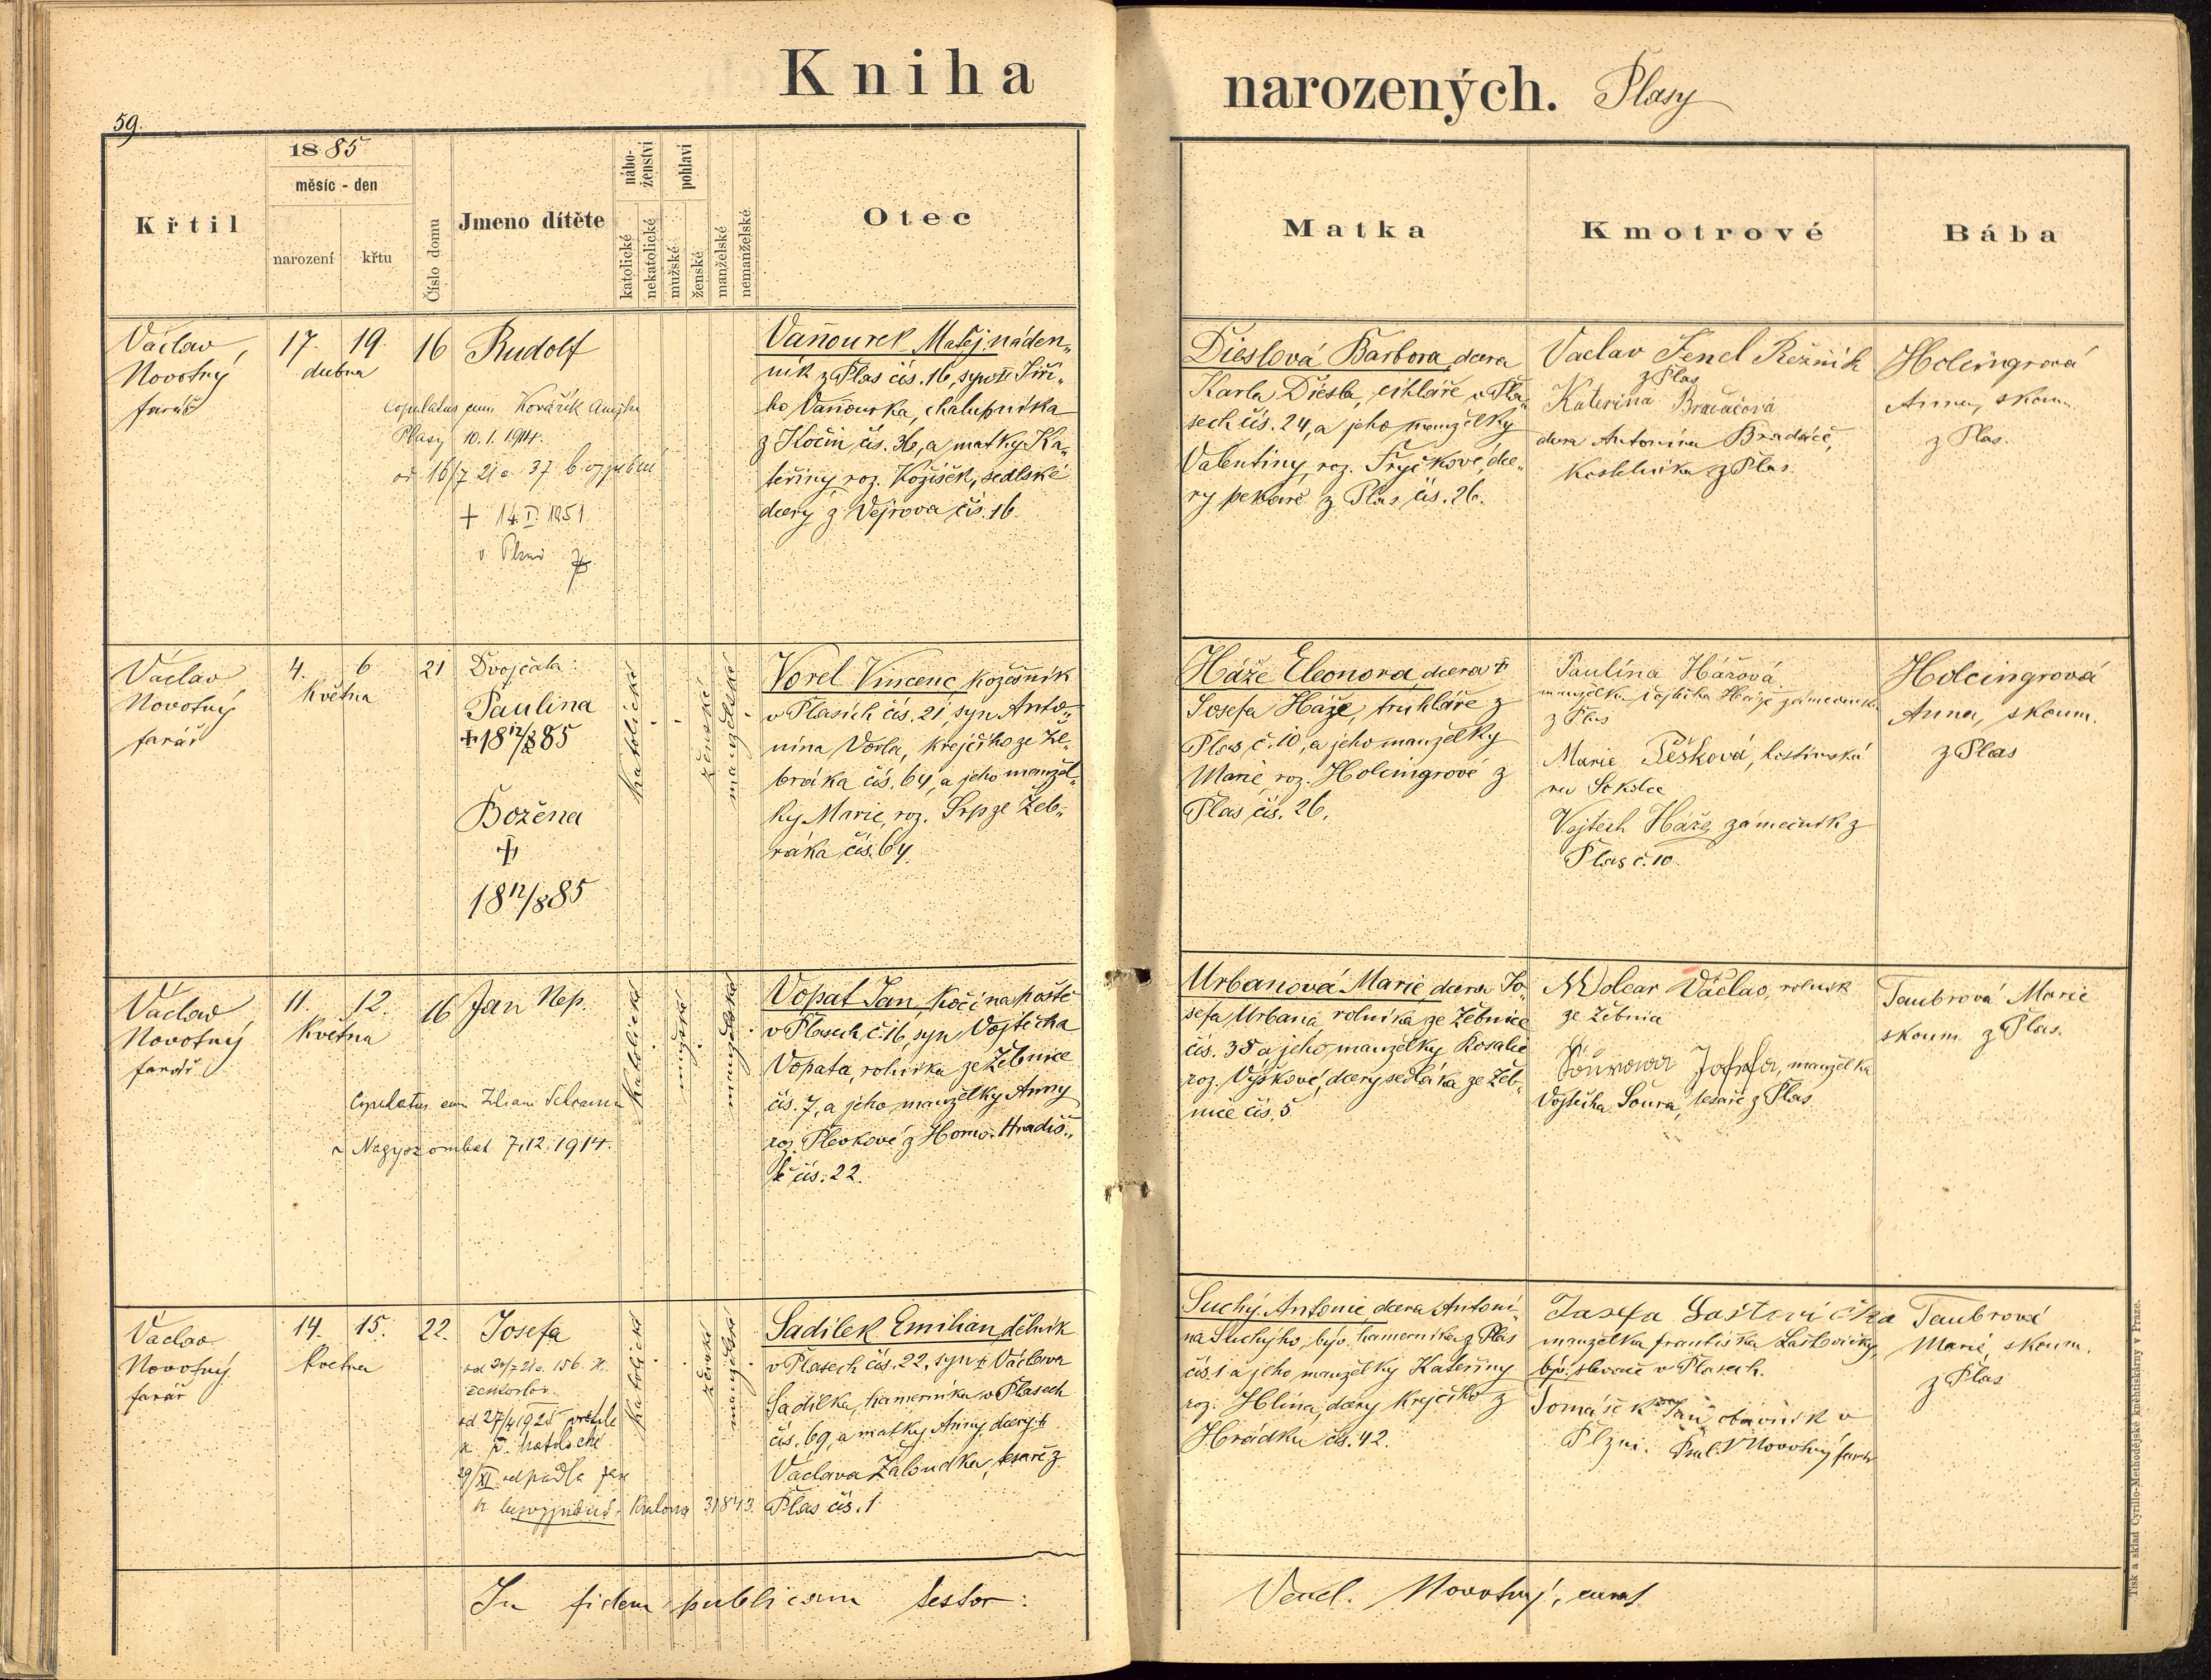 Kniha
narozených. Plasy
59.
1885
měsíc - den
Křtil
narození
křtu
Číslo domu
Jmeno dítěte
nábo-
ženství
katolické
nekatolické
pohlaví
mužské
ženské
manželské
nemanželské
Otec
Matka
Kmotrové
Bába
Václav
Novotný
farář
17. 19.
dubna
16
Rudolf
Copulatus cum Kovářík
Plasy 10.1.1914.
od 16/7 21 37
+ 14.I.1951.
v Plzni
Vaňourek Matěj, náden-
ník z Plas čís. 16, syn Jiří-
ho Vaňourka, chalupníka
z Kočin čís. 36, a matky Ka-
teřiny roz. Kožíšek, sedlské
dcery z Vejrova čís. 16.
Dieslová Barbora, dcera
Karla Diesla, cihláře v Pla-
sech čís. 24, a jeho manželky
Valentiny, roz. Fryčkové, dce-
ry pekaře z Plas čís. 26.
Vaclav Fencl Řezník
z Plas
Katerina Bradáčová
dcera Antonína Bradáče,
Kostelníka z Plas.
Holeingrová
Anna, zkoum.
z Plas.
Václav
Novotný
farář
4. 6.
Května
21
Dvojčata:
Paulina
+18 12/8 85
Božena
+
18 12/8 85
katolické
ženské
manželské
Vorel Vincenc, kožešník
v Plasích čís. 21, syn Anto-
nína Vorla, krejčího ze Že-
bráka čís. 64, a jeho manžel-
ky Marie, roz. Srp ze Žeb-
ráka čís. 64
Háže Eleonora, dcera +
Josefa Háže, truhláře z
Plas, č. 10, a jeho manželky
Marie roz. Holeingrové z
Plas čís. 26.
Paulína Házová
manželka Vojtěcha Háže zámečníka
z Plas
Marie Pešková, hostinská
na Sokolce
Vojtěch Háže zámečník z
Plas č. 10.
Holeingrová
Anna, zkoum.
z Plas
Václav
Novotný
farář
11. 12.
Května
16
Jan Nep.
Copulatus cum
v Nagyszombat 7.12.1914.
katolické
mužské
manželské
Vopat Jan, kočí na poště
v Plasech č. 16, syn Vojtěcha
Vopata, rolníka ze Žebnice
čís. 7, a jeho manželky Anny
roz. Plevkové z Horno. Hradiš-
tě čís. 22.
Urbanová Marie, dcera Jo-
sefa Urbana, rolníka ze Žebnice
čís. 35 a jeho manželky Rosalie
roz. Výškové, dcery sedláka ze Žeb-
nice čís. 5
Volcar Václav, rolník
ze Žebnic
Šourová Josefa, manželka
Vojtěcha Šoura, tesaře z Plas
Taubrová Marie
zkoum. z Plas.
Václav
Novotný
farář
14. 15.
Května
22.
Josefa
od 27/4 1925
k ř. katolické
29/XI odpadla zase
k bezvyznání. Kralova 31843.
katolické
ženské
manželské
Sadílek Emilian, dělník
v Plasech čís. 22, syn + Václava
Sadílka, hamerníka v Plasech
čís. 69, a matky Anny, dcery +
Václava Žaloudka, tesaře z
Plas čís. 1
Suchý Antonie, dcera Antoní-
na Suchýho, býv. hamerníka z Plas
čís. 1 a jeho manželky Kateřiny
roz. Hlína, dcery krejčího z
Hrádku čís. 42.
Josefa Laštovička
manželka Františka Laštovičky,
býv. slevače v Plasech.
Tomášek Jan obuvník v
Plzni. Psal V Novotný farář
Taubrová
Marie, zkoum.
z Plas
In fidem publicam testor:
Vencl. Novotný, curat.
Tisk a sklad Cyrillo-Methodějské knihtiskárny v Praze.